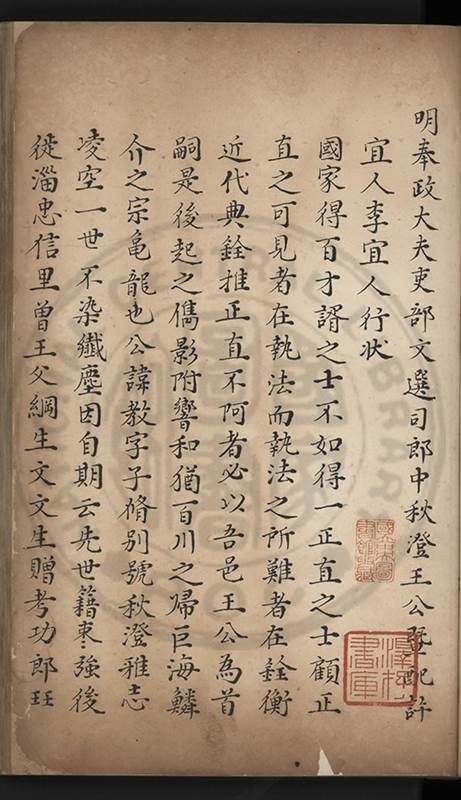 明奉政大夫吏部文選司郎中秋澄王公曁配許
宜人李宜人行状
國家得百才諝之士不如得一正直之士顧正
直之可見者在執法而執法之所難者在銓衡
近代典銓推正直不阿者必以吾邑王公為首
嗣是後起之儁影附響和猶百川之歸巨海鱗
介之宗龜龍也公諱教字子脩别號秋澄雅志
凌空一世不染纖塵因自期云先世籍枣強後
徙淄忠信里曾王父綱生文文生贈考功郎玨
澤存書庫